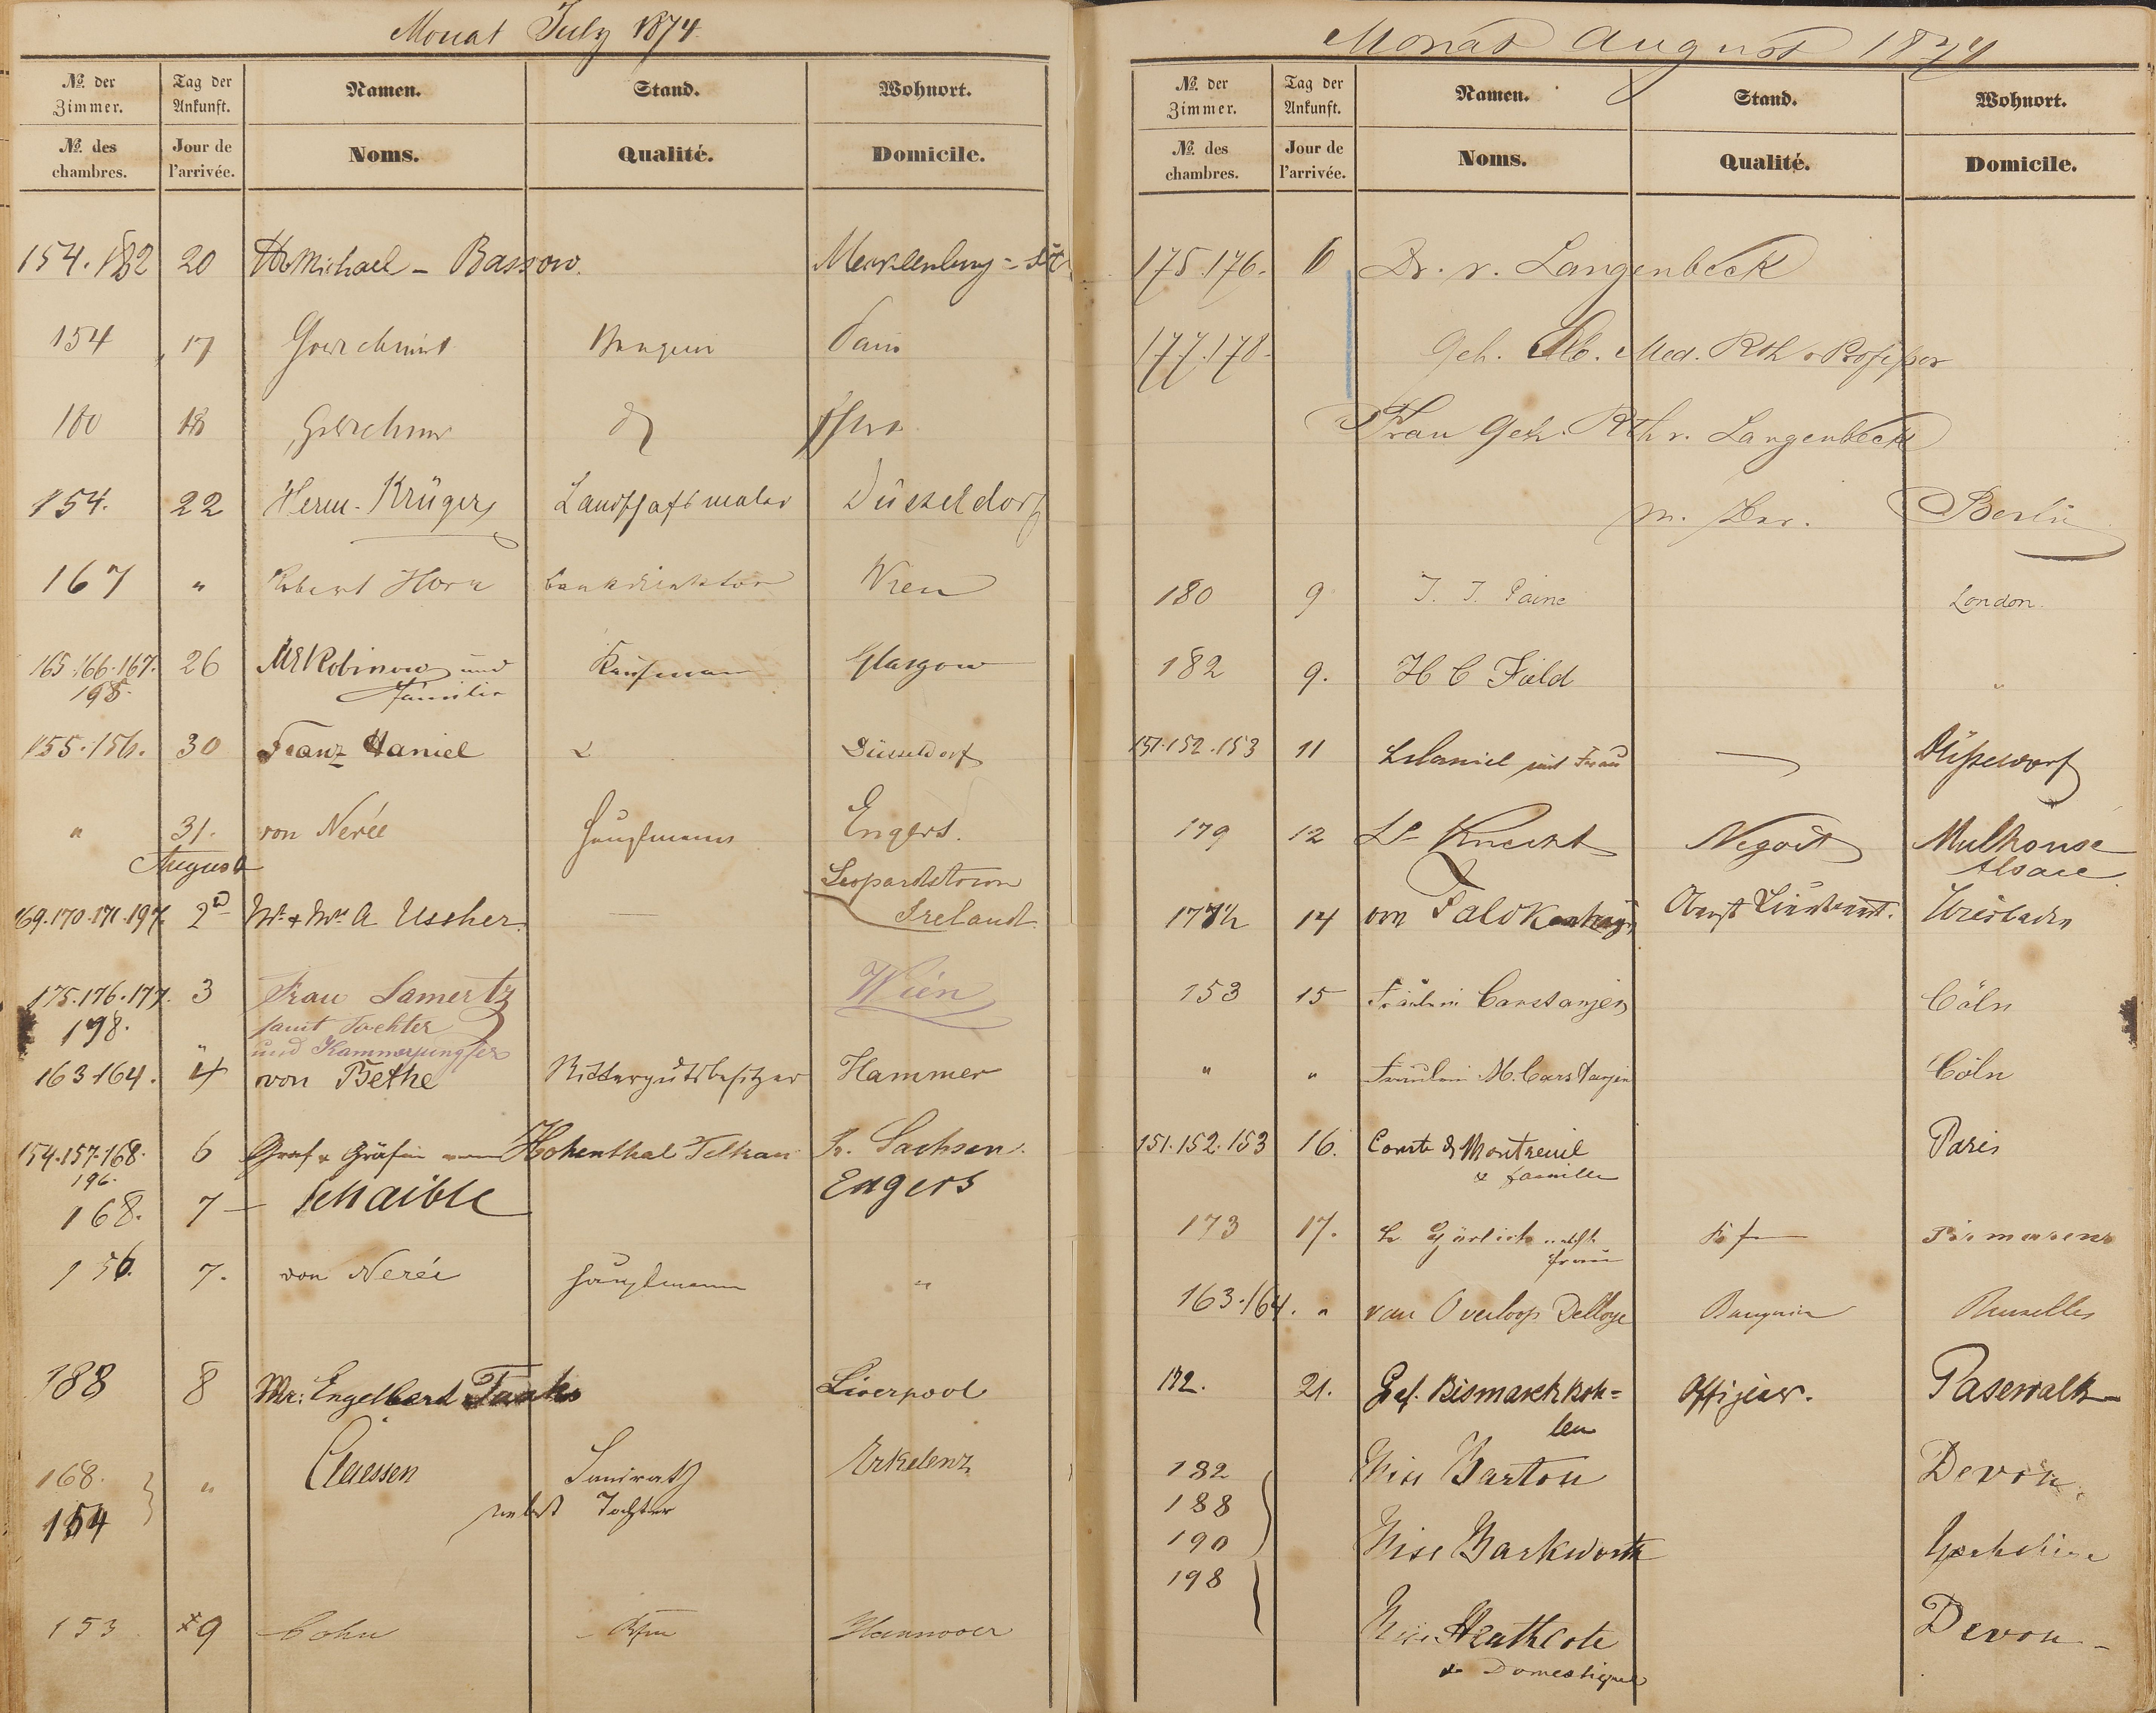 Monat July 1874
№ der Zimmer. Tag der Ankunft. Namen. Stand. Wohnort.
№ des chambres. Jour de l'arrivée. Noms. Qualité. Domicile.
154. 182 20 Michael - Bassow. Mecklenburg
154 17
180 18
154. 22 Herm. Krüger Landschaftsmaler Düsseldorf
167 " Robert Horn bankdirektor Wien
165.166.167. 26 Mr Robinow und Kaufmann Glasgow
198. Familie
155.156. 30 Franz Haniel Düsseldorf
" 31. von Nerée Hauptmann Engers.
August
Leopardstown
169.170.171.197. 2d Mr. & Mrs. A Ussher. — Ireland.
175.176.177. 3 Frau Lamertz Wien
198. samt Tochter
" und Kammerjungfer
163.164. 4 von Bethe Rittergutsbesitzer Hammer
154.157.168. 6 Graf u Gräfin von Hohenthal Pr. Sachsen.
196.
168. 7 — Schaible Engers
156. 7. von Nerée Hauptmann "
188 8 Mr: Engelberd Liverpool
168. " Claessen Erkelenz
154 nebst Tochter
153 9 Cohn Kfm Hannover
Monat August 1874
№ der Zimmer. Tag der Ankunft. Namen. Stand. Wohnort.
№ des chambres. Jour de l'arrivée. Noms. Qualité. Domicile.
175.176. 6 Dr. v. Langenbeck
177.178. Geh. Ob. Med. Rth u Professor
u Frau Geh. Rth v. Langenbeck
Berlin
180 9 J. J. Paine London
182 9. H C Field "
151.152.153 11 Haniel mit Frau — Düsseldorf
179 12 Knecht Negoct Mulhouse
Alsace
14 von Oberst Lieutenant. Wiesbaden
153 15 Fräulein Carstanjen Cöln
" " Fräulein M. Carstanjen Cöln
151.152.153 16. Comte de Montreuil Paris
& famille
173 17. Kf Pirmasens
frau
163.164. " van Overloop Delloye Banquier Bruxelles
172. 21. Grf. Bismarck Boh= Offizier. Pasewalk
len
182 Miss Barton Devon.
188
190 Miss Barkworth Yorkshire
198
Miss Heathcote Devon -
& Domestique